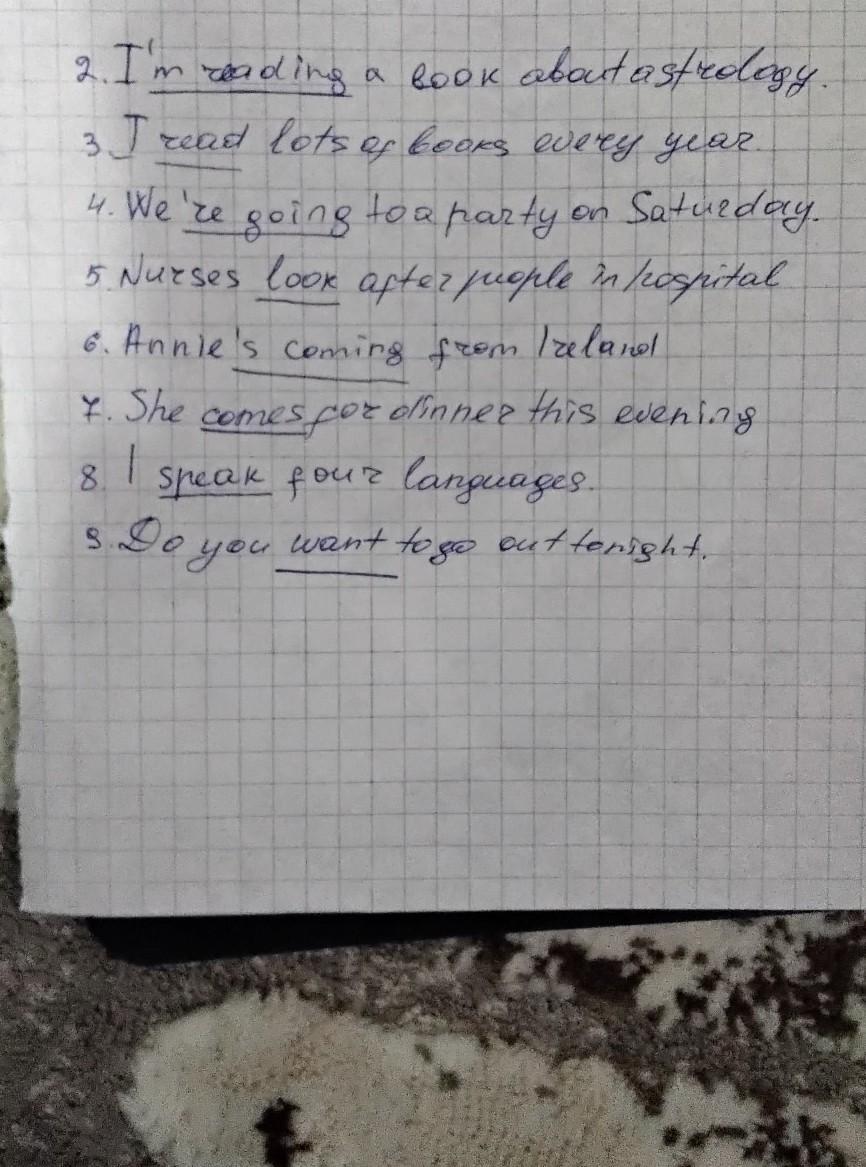 2. I'm reading a book about astrology.
3. I read lots of books every year.
4. We're going to a party on Saturday.
5. Nurses look after people in hospital
6. Annie's coming from Ireland
7. She comes for dinner this evening
8 I speak four languages.
9. Do you want to go out tonight.